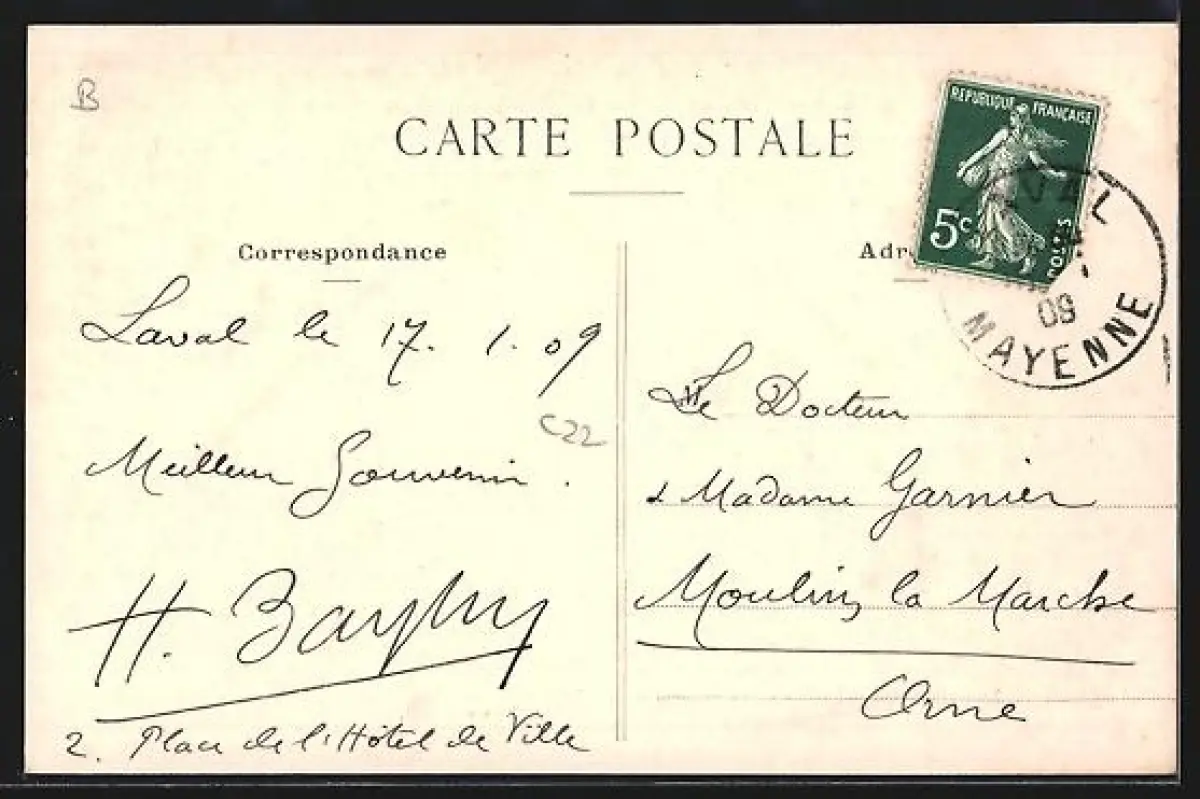 B
CARTE POSTALE
RÉPUBLIQUE FRANÇAISE
5c
POSTES
VAL
09
MAYENNE
Correspondance
Laval le 17. 1. 09
C22
Meilleur Souvenir.
H.
2. Place de l'Hôtel de Ville
Adr
Le Docteur
& Madame Garnier
Moulins la Marche
Orne